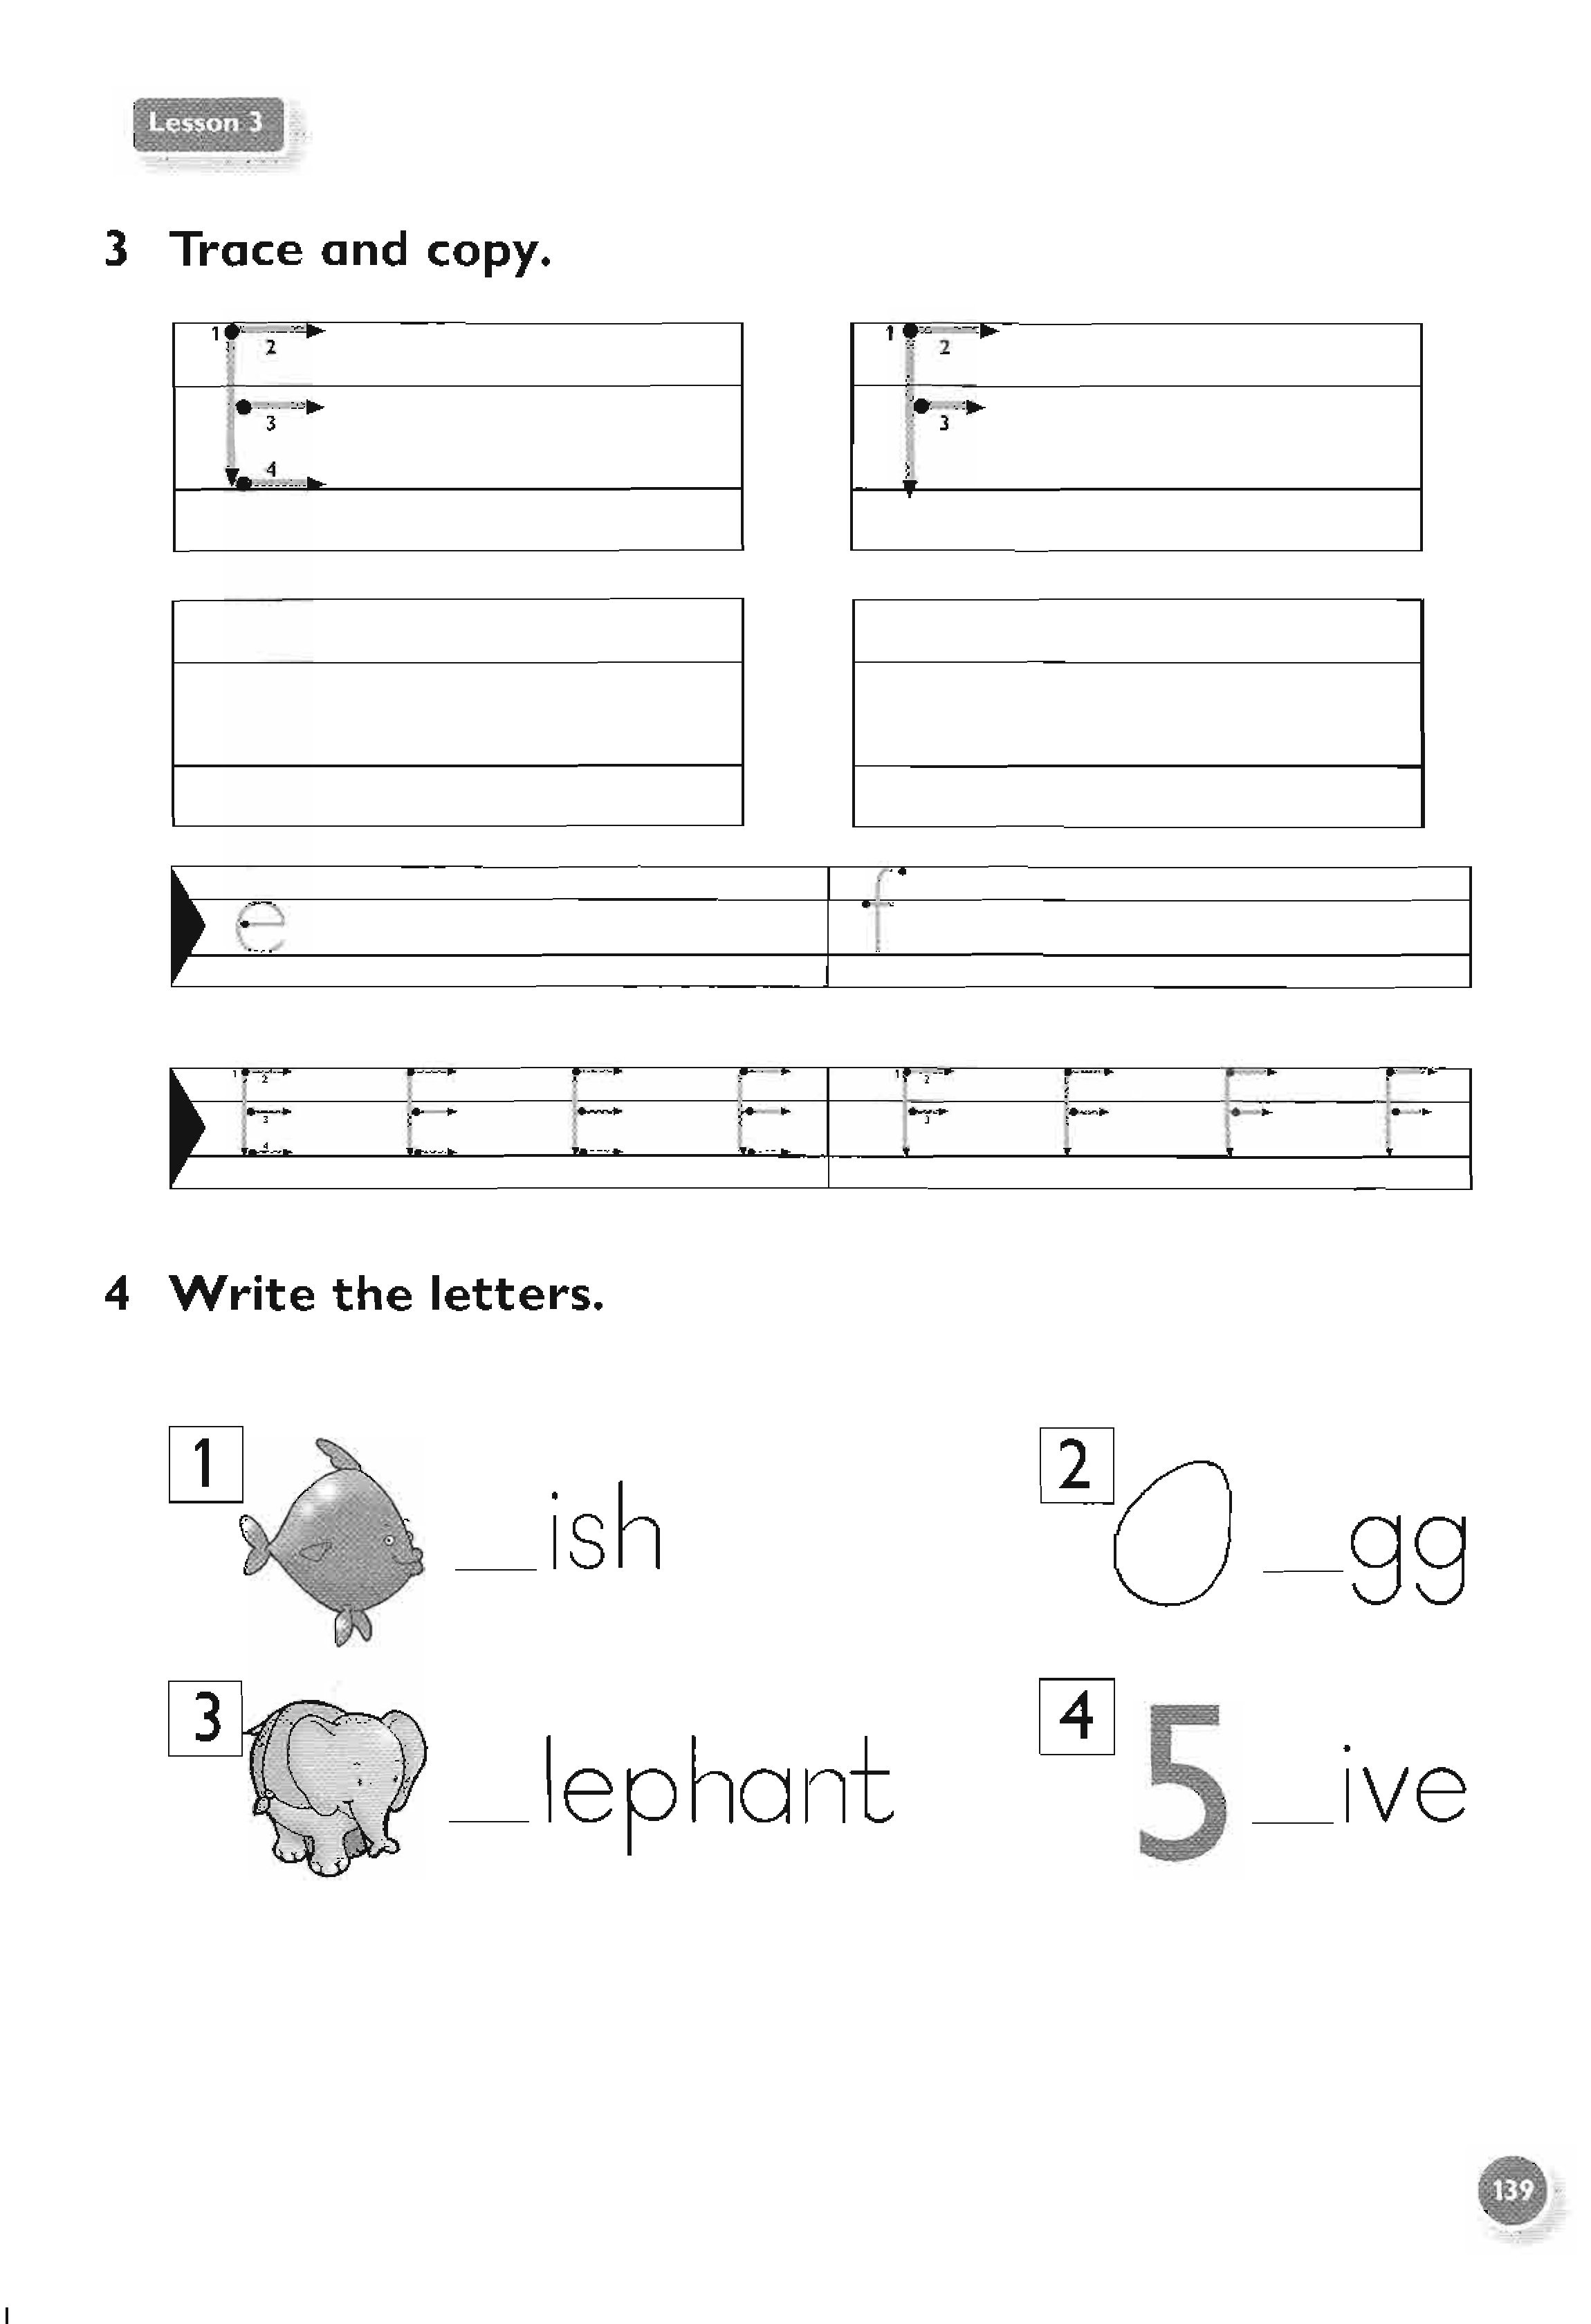 Lesson 3
3 Trace and copy.
1 2 3 4
1 2 3
e f
1 2 3 4 1 2 3
4 Write the letters.
1 __ish
2 __gg
3 __lephant
4 5 __ive
139